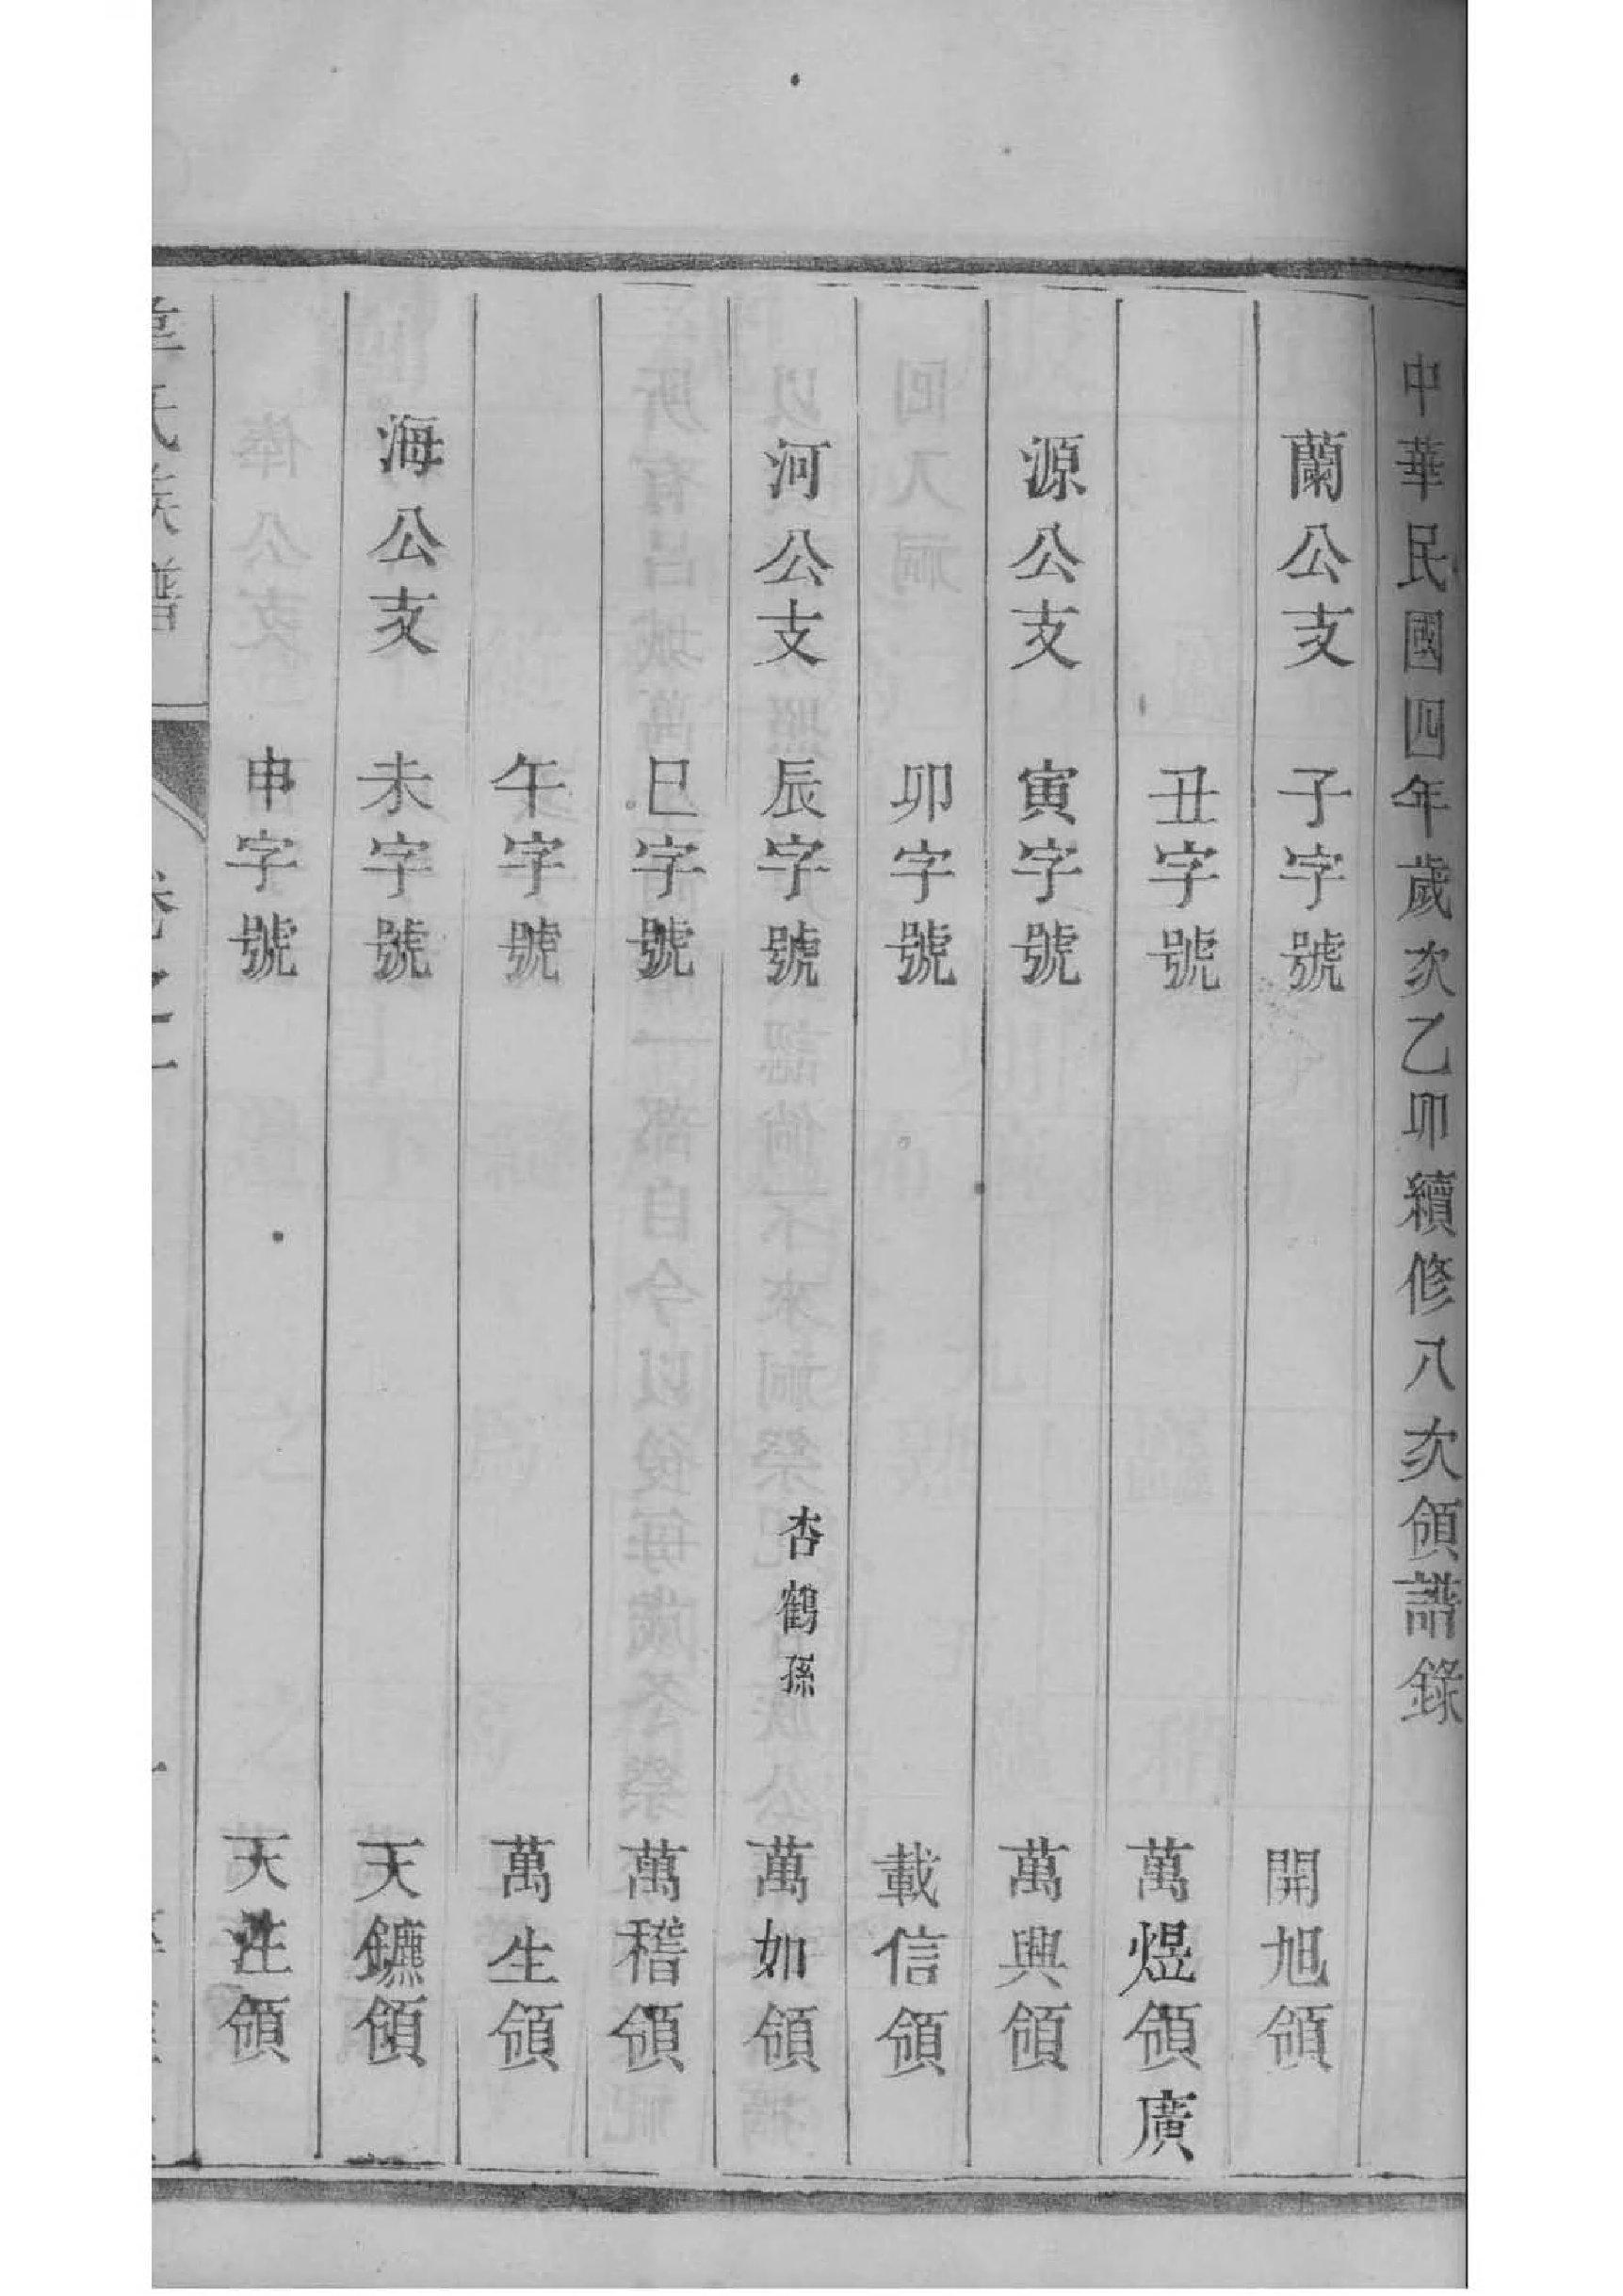 中華民國四年歲次乙卯續修八次領譜錄
蘭公支 子字號 開旭領
丑字號 萬煜領廣
源公支 寅字號 萬興領
卯字號 載信領
河公支 辰字號 杏鶴孫 萬如領
巳字號 萬稽領
午字號 萬生領
海公支 未字號 天鑣領
申字號 天注領
氏族譜
卷之一